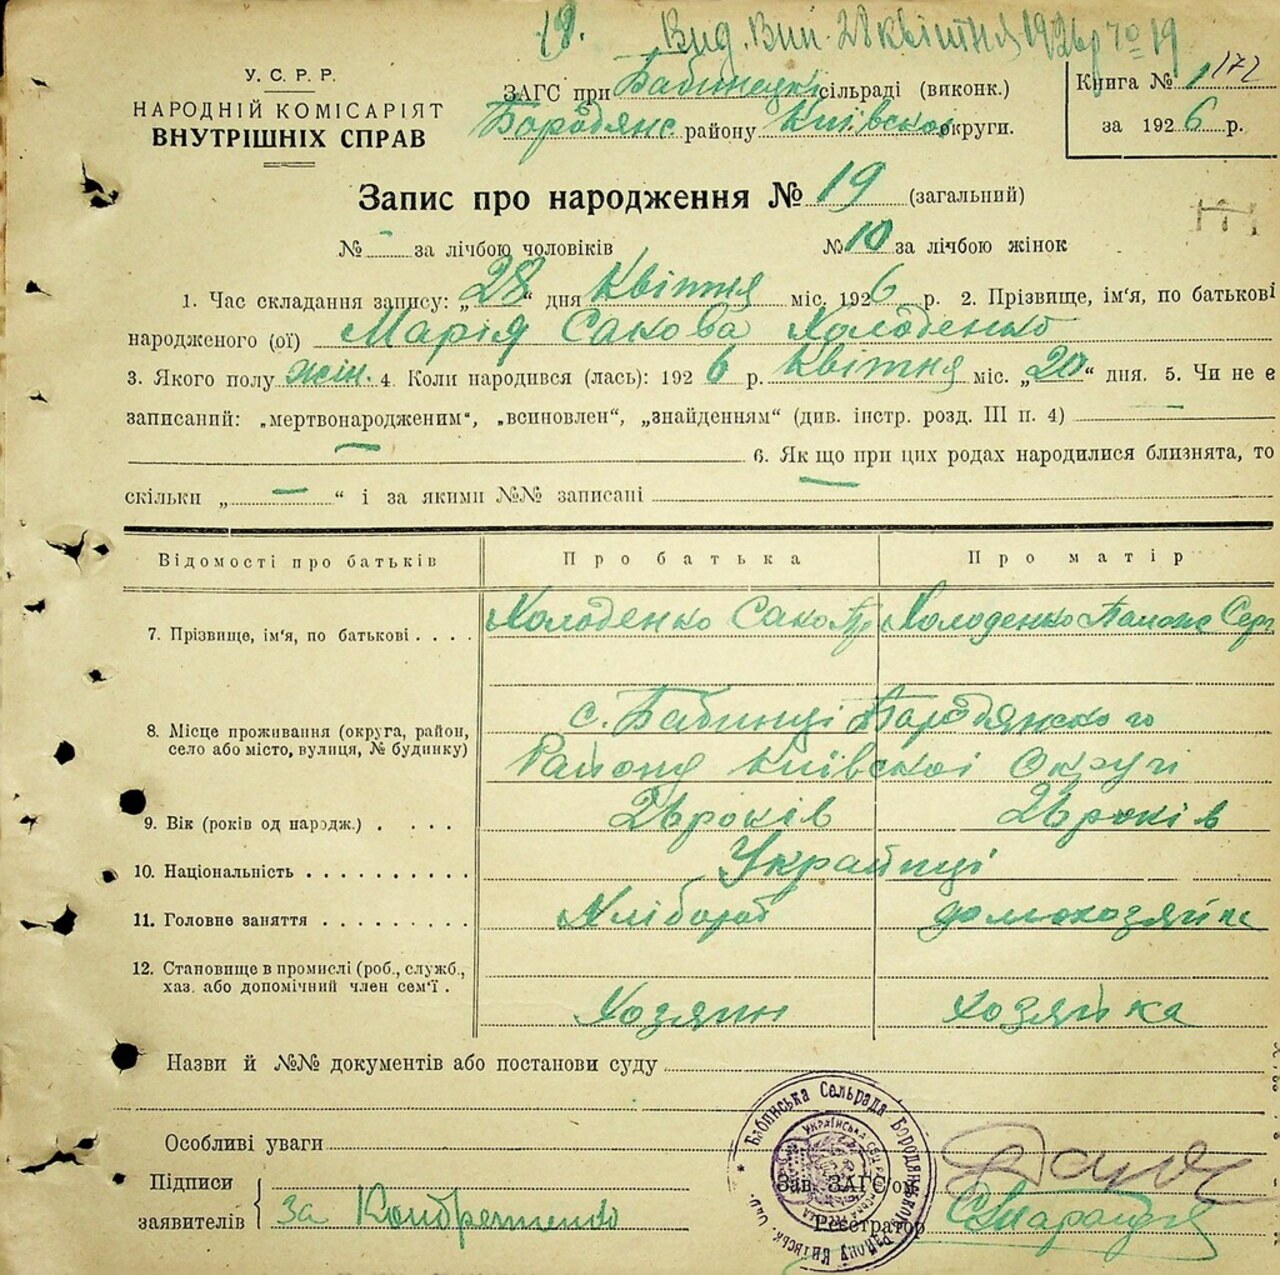 19. Вид. Вип. 28 квітня 1926 р № 19
У. С. Р. Р.
НАРОДНІЙ КОМІСАРІЯТ
ВНУТРІШНІХ СПРАВ
ЗАГС при Бабинецкі сільраді (виконк.)
Бородянс району Київської округи.
Книга № 1 172
за 1926 р.
Запис про народження № 19 (загальний)
№ - за лічбою чоловіків № 10 за лічбою жінок
1. Час складання запису: „28“ дня Квітня міс. 1926 р. 2. Прізвище, ім'я, по батькові
народженого (ої) Марія Сакова Холоденко
3. Якого полу жін. 4. Коли народився (лась): 1926 р. Квітня міс. „20“ дня. 5. Чи не є
записаний: „мертвонародженим“, „всиновлен“, „знайденням“ (див. інстр. розд. III п. 4) —
— 6. Як що при цих родах народилися близнята, то
скільки „—“ і за якими №№ записані —
Відомості про батьків Про батька Про матір
7. Прізвище, ім'я, по батькові . . . . Холоденко Сако Холоденко Серг
8. Місце проживання (округа, район,
село або місто, вулиця, № будинку)
с. Бабинці Бородянского
Району Київскої Округи
9. Вік (років од народж.) . . . . 26 років 26 років
10. Національність . . . . . . . . . . Українці
11. Головне заняття . . . . . . . . . Хлібороб домохозяйка
12. Становище в промислі (роб., служб.,
хаз. або допомічний член сем'ї .
Хозяин Хозяйка
Назви й №№ документів або постанови суду
Особливі уваги
Підписи
заявителів
за Кондратенко
Зав. ЗАГС'ом
Реєстратор
* Бабинська Сельрада Бородянського Району Київськ. Окр.